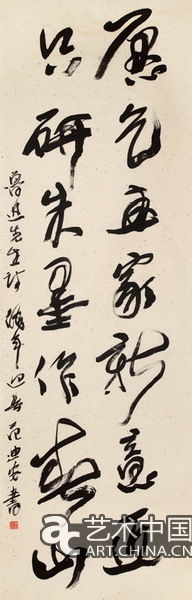 愿乞画家新意匠
只研朱墨作春山
鲁迅先生诗 年迎春 范迪安书
艺术中国
ART.CHINA.CN